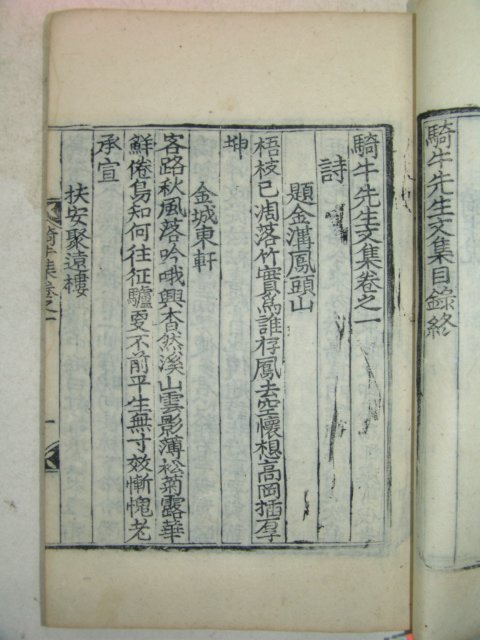 騎牛先生文集目錄終
騎牛先生文集卷之一
詩
題金溝鳳頭山
梧枝已凋落竹實爲誰存鳳去空懷想高岡揷厚
坤
金城東軒
客路秋風落吟哦興杳然溪山雲影薄松菊露華
鮮倦鳥知何往征驢更不前平生無寸效慚愧老
承宣
扶安聚遠樓
騎牛集卷之一
一